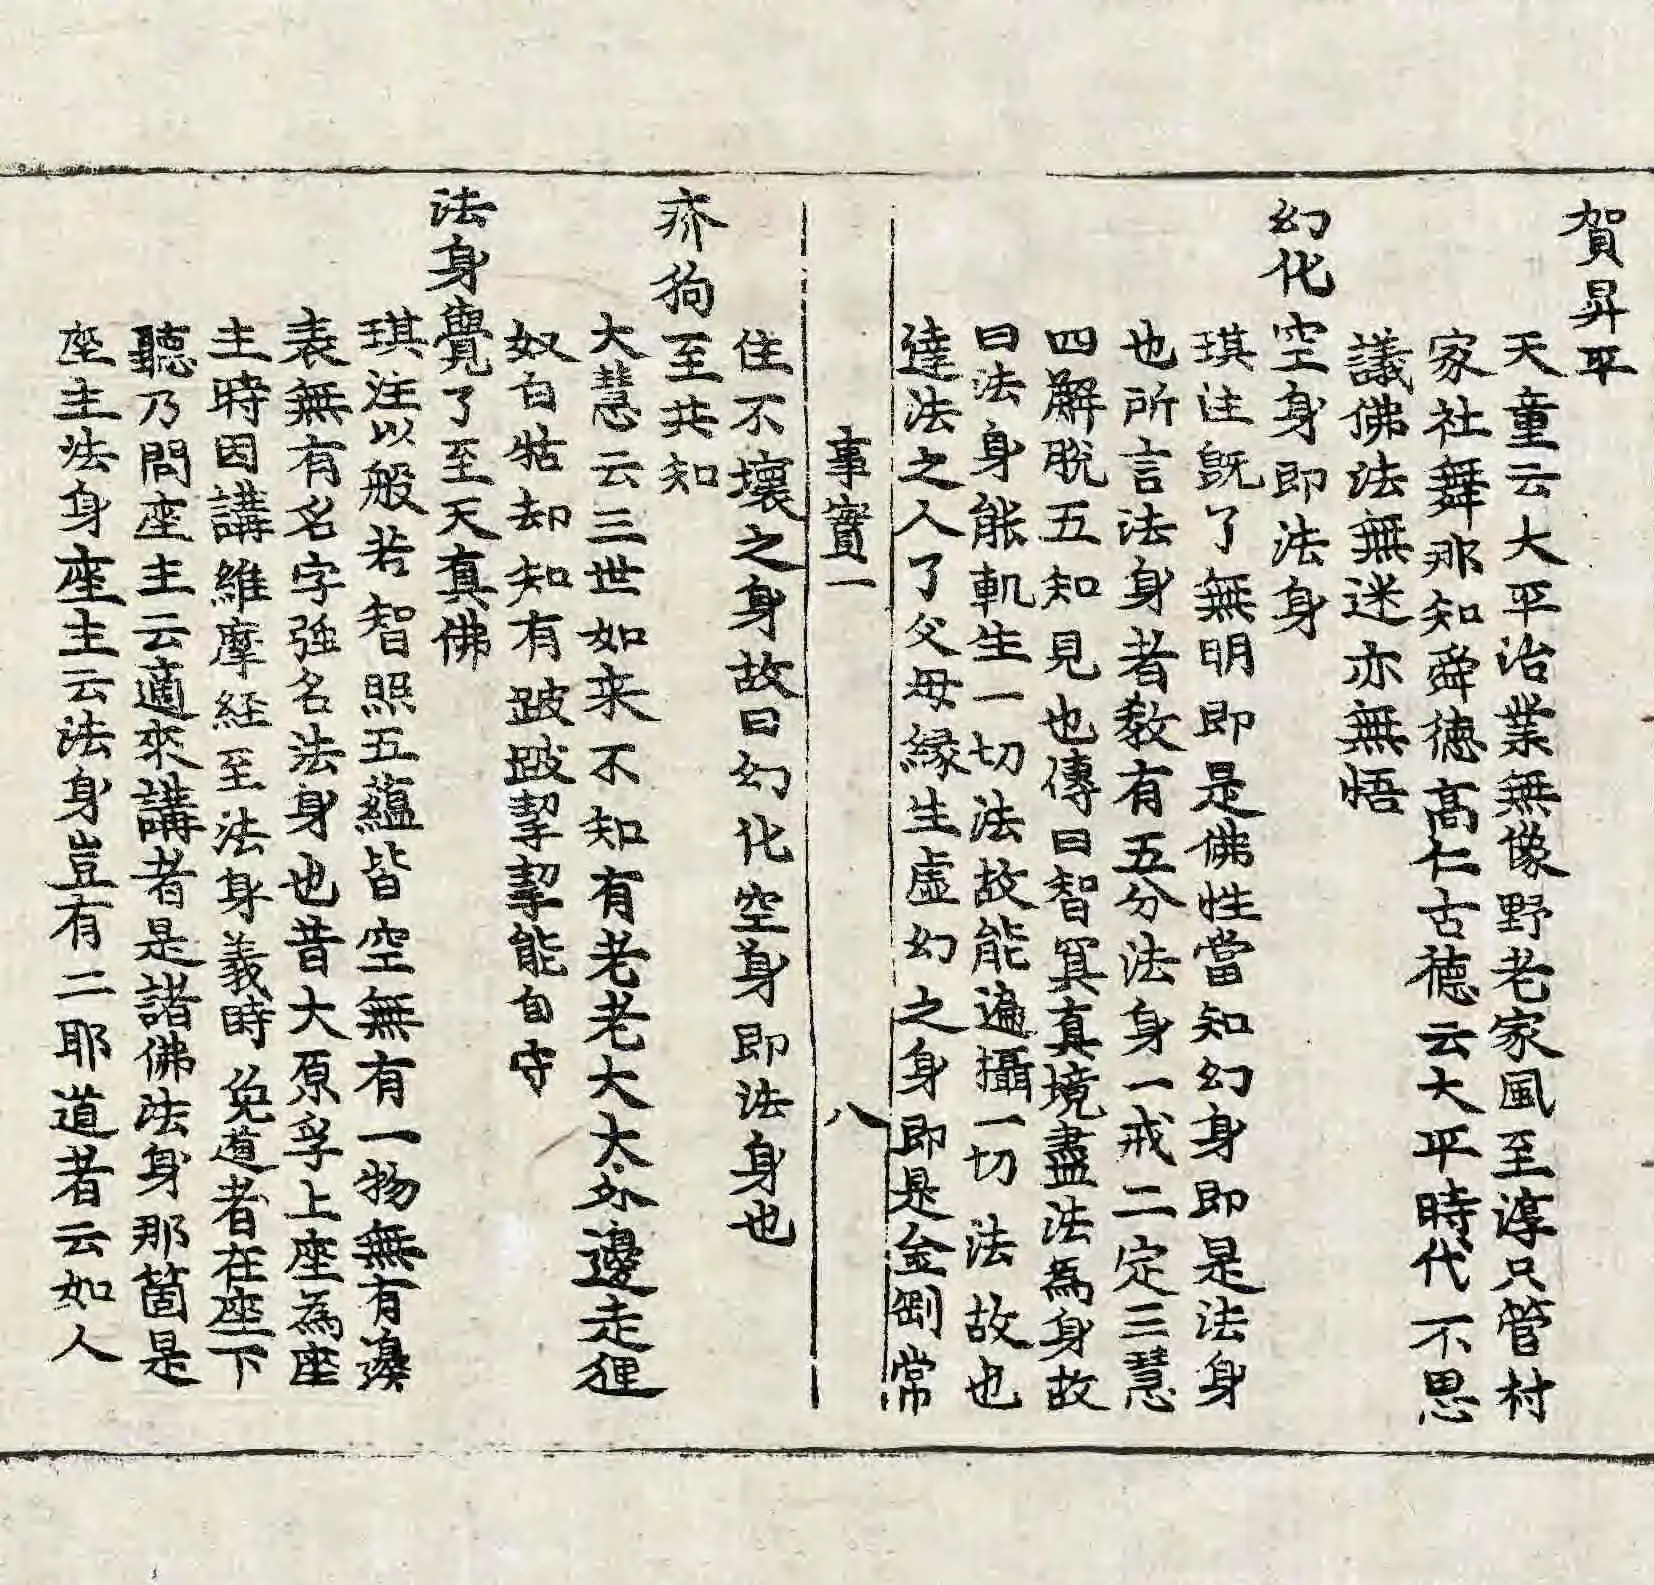 賀昇平
天童云大平治業無像野老家風至淳只管村
家社舞那知舜德髙仁古德云大平時代不思
議佛法無迷亦無悟
幻化空身即法身
琪注既了無明即是佛性當知幻身即是法身
也所言法身者教有五分法身一戒二定三慧
四解脫五知見也傳曰智冥真境盡法為身故
曰法身能軌生一切法故能遍攝一切法故也
達法之人了父母緣生虛幻之身即是金剛常
事實一 八
住不壞之身故曰幻化空身即法身也
狗至共知
大慧云三世如来不知有老老大大外邊走狸
奴白牯却知有跛跛挈挈能自守
法身覺了至天真佛
琪注以般若智照五蘊皆空無有一物無有邊
表無有名字強名法身也昔大原孚上座為座
主時因講維摩經至法身義時免道者在座下
聽乃問座主云適來講者是諸佛法身那箇是
座主法身座主云法身豈有二耶道者云如人